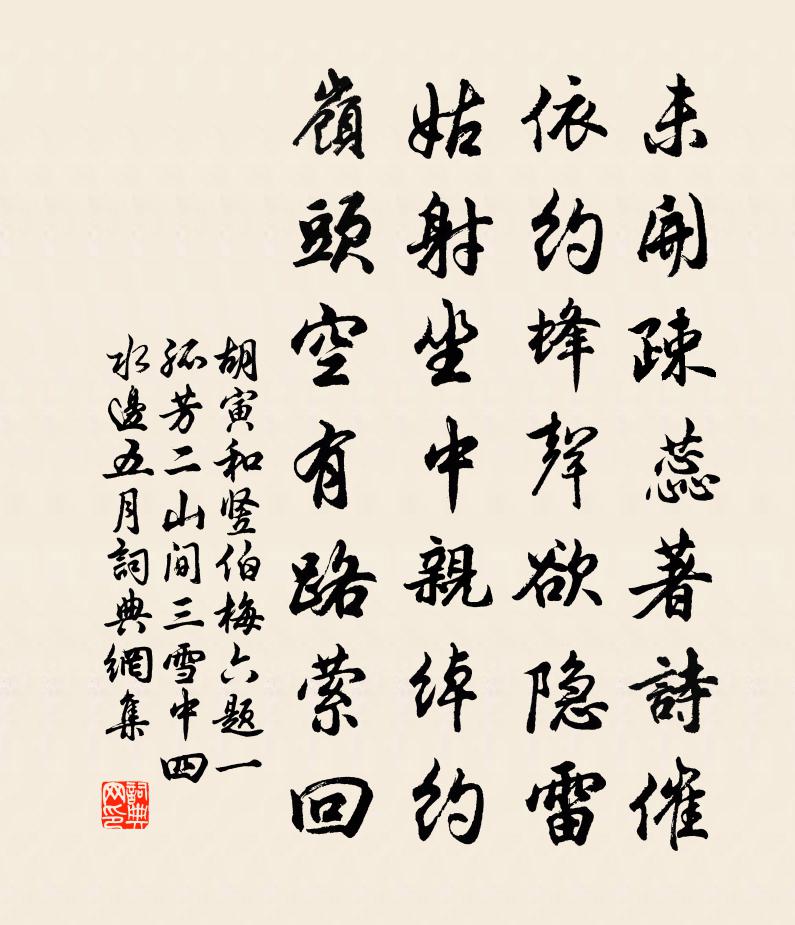 未開疎蕊著詩催
依約蜂聲欲隐雷
姑射坐中親綽約
嶺頭空有路萦回
胡寅和竖伯梅六题一
孤芳二山间三雪中四
水邊五月詞典網集
詞典
网印